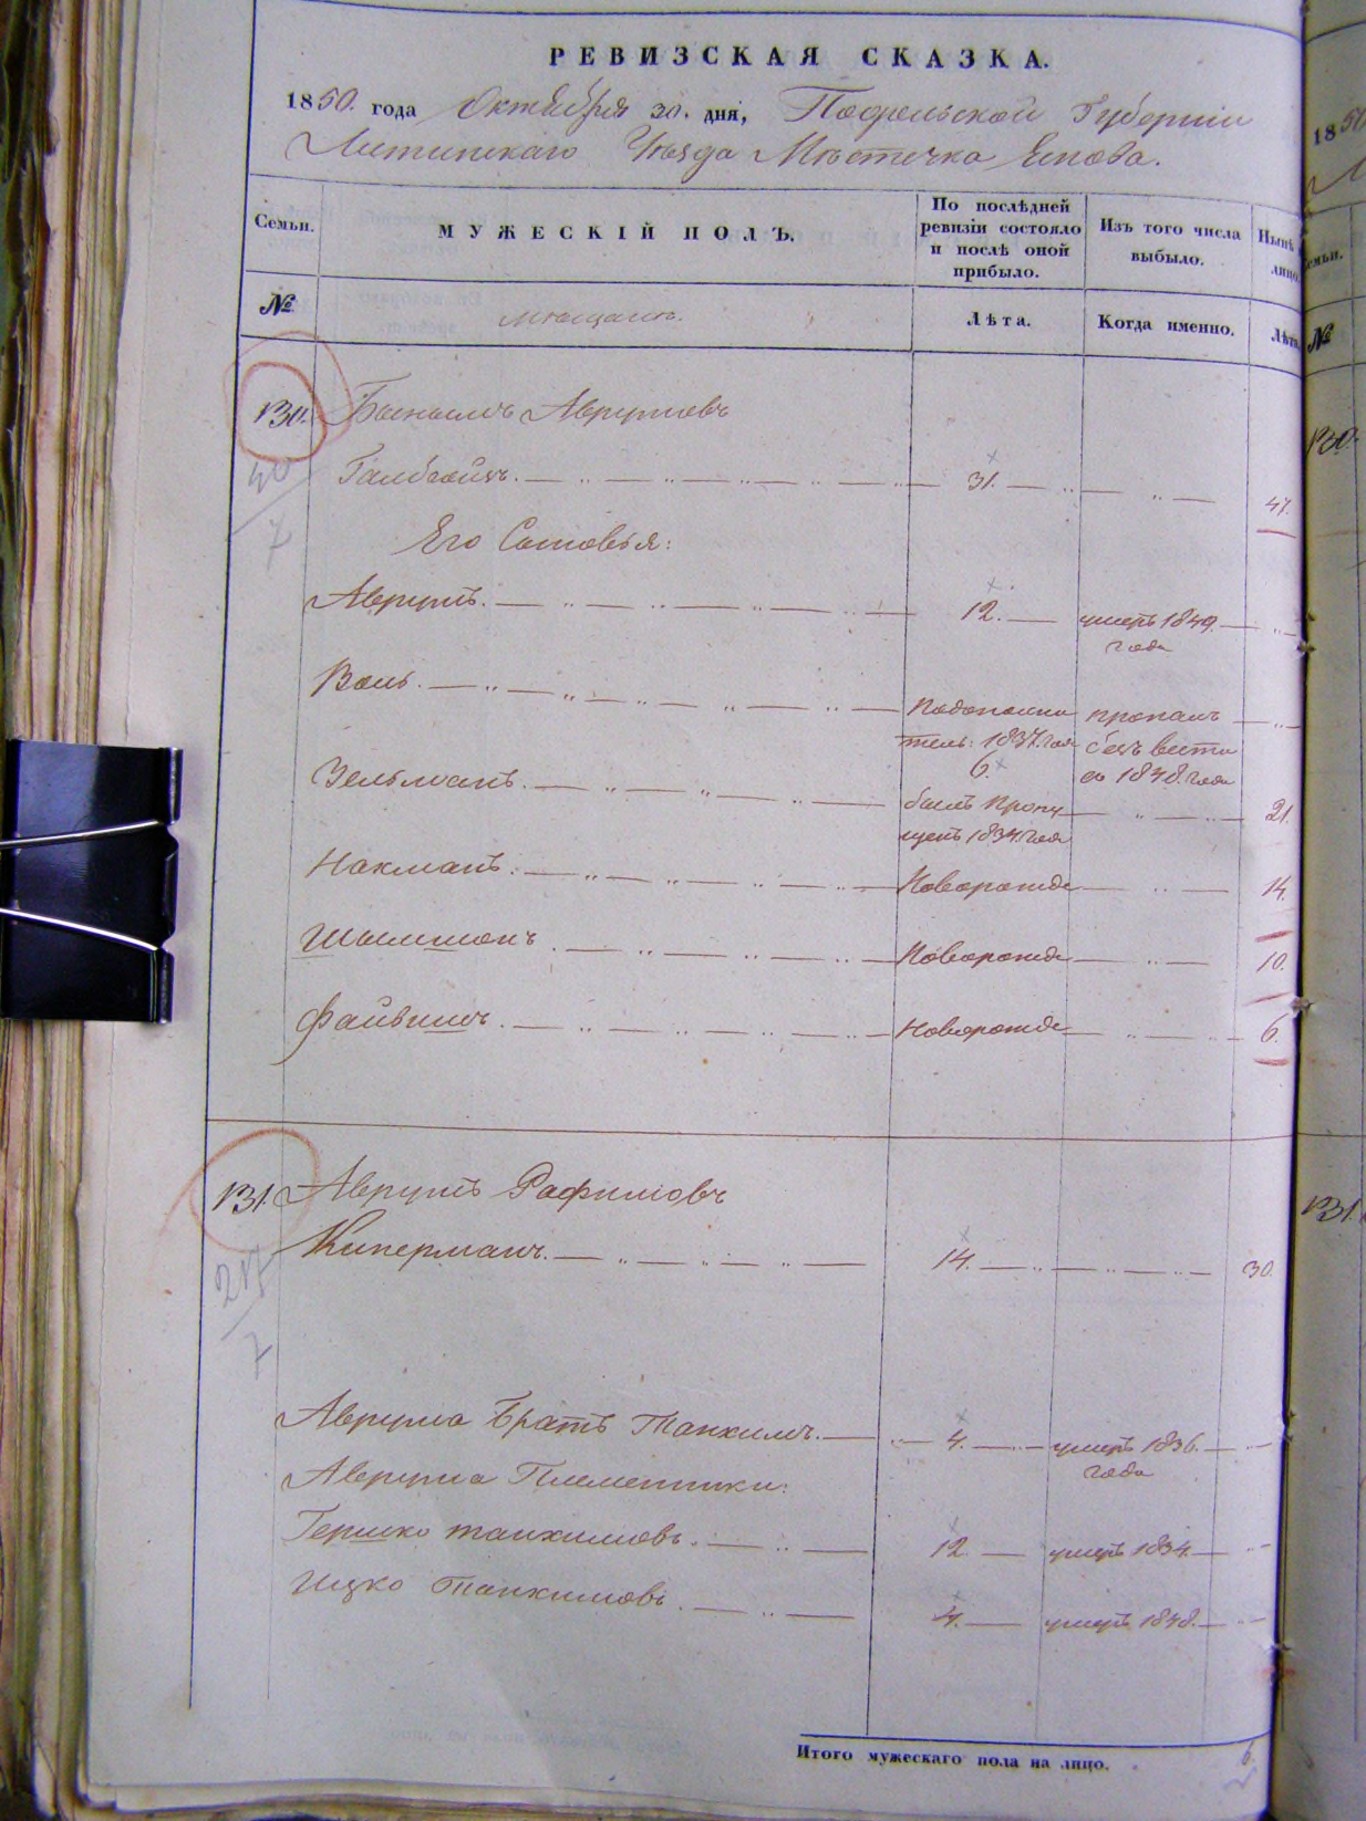 РЕВИЗСКАЯ СКАЗКА.
1850. года Октября 30. дня, Подольской Губернии
Литинскаго Уѣзда Мѣстечка
Семьи.
МУЖЕСКІЙ ПОЛЪ.
По послѣдней ревизіи состояло и послѣ оной прибыло.
Изъ того числа выбыло.
Нынѣ
лицо
№
мѣщанъ.
Лѣта.
Когда именно.
Лѣта
130. Аврумовъ
31. 47.
40
7
Его Сыновья:
Аврумъ. 12. умеръ 1849. года
1837. года пропалъ безъ вести 1848. года
6.
Зельманъ. былъ пропущенъ 1834 года 21.
Нахманъ. Новорожде 14.
Шыммонъ. Новорожде 10.
Файвишъ. Новорожде 6.
131. Аврумъ Рафимовъ
Киперманъ. 14. 30.
7
Аврума Братъ Танхимъ. 4. умеръ 1836. года
Аврума Племенники:
Гершко танхимовъ. 12. умеръ 1834.
Ицко Танхимовъ. 4. умеръ 1848.
Итого мужескаго пола на лицо. 6.
1850
№
130.
131.